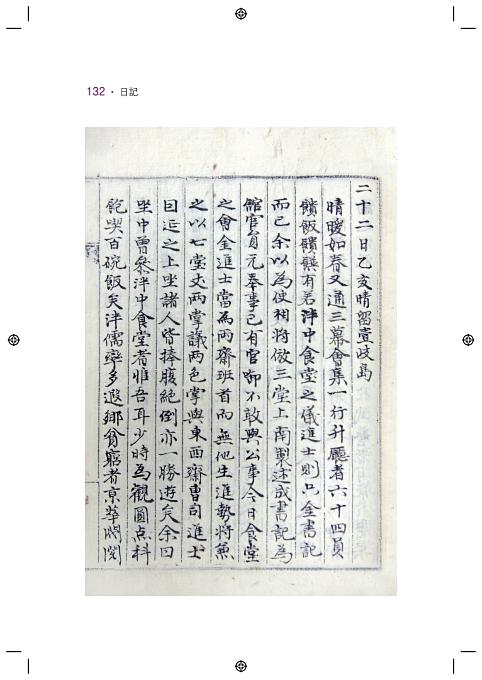 132 · 日記
二十二日乙亥晴留壹岐島
晴暖如春又通三幕會集一行升廳者六十四員
饋飯饋饌有若泮中食堂之儀進士則只金書記
而已余以為使相將做三堂上南製述成書記為
館官貟元奉事已有官啣不敢與公事今日食堂
之會金進士當為兩齋班首而無他生進勢將兼
之以七堂丈兩掌議兩色掌與東西齋曹司進士
曰延之上坐諸人皆捧腹絕倒亦一勝遊矣余曰
坐中曽叅泮中食堂者惟吾耳少時為觀圓点科
飽喫百碗飯矣泮儒率多遐鄉貧窮者京華閥閱